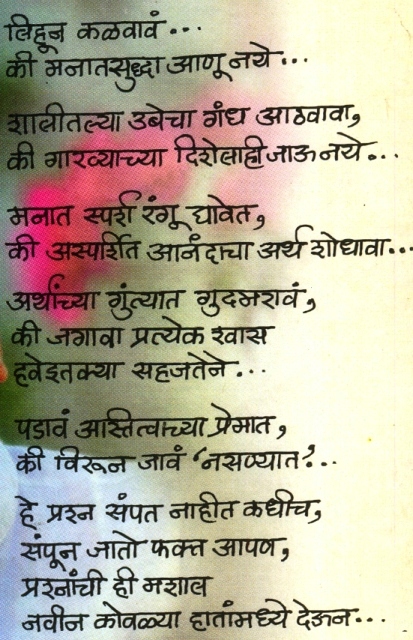 लिहून कळवावं...
की मनातसुद्धा आणू नये...
शालीतल्या उबेचा गंध आठवावा,
की गारव्याच्या दिशेलाही जाऊ नये...
मनात स्पर्श रंगू द्यावेत,
की अस्पर्शित आनंदाचा अर्थ शोधावा...
अर्थाच्या गुंत्यात गुदमरावं,
की जगावा प्रत्येक श्वास
हवेइतक्या सहजतेने...
पडावं अस्तित्वाच्या प्रेमात,
की विरून जावं 'नसण्यात'?..
हे प्रश्न संपत नाहीत कधीच,
संपून जातो फक्त आपण,
प्रश्नांची ही मशाल
नवीन कोवळ्या हातांमध्ये देऊन...